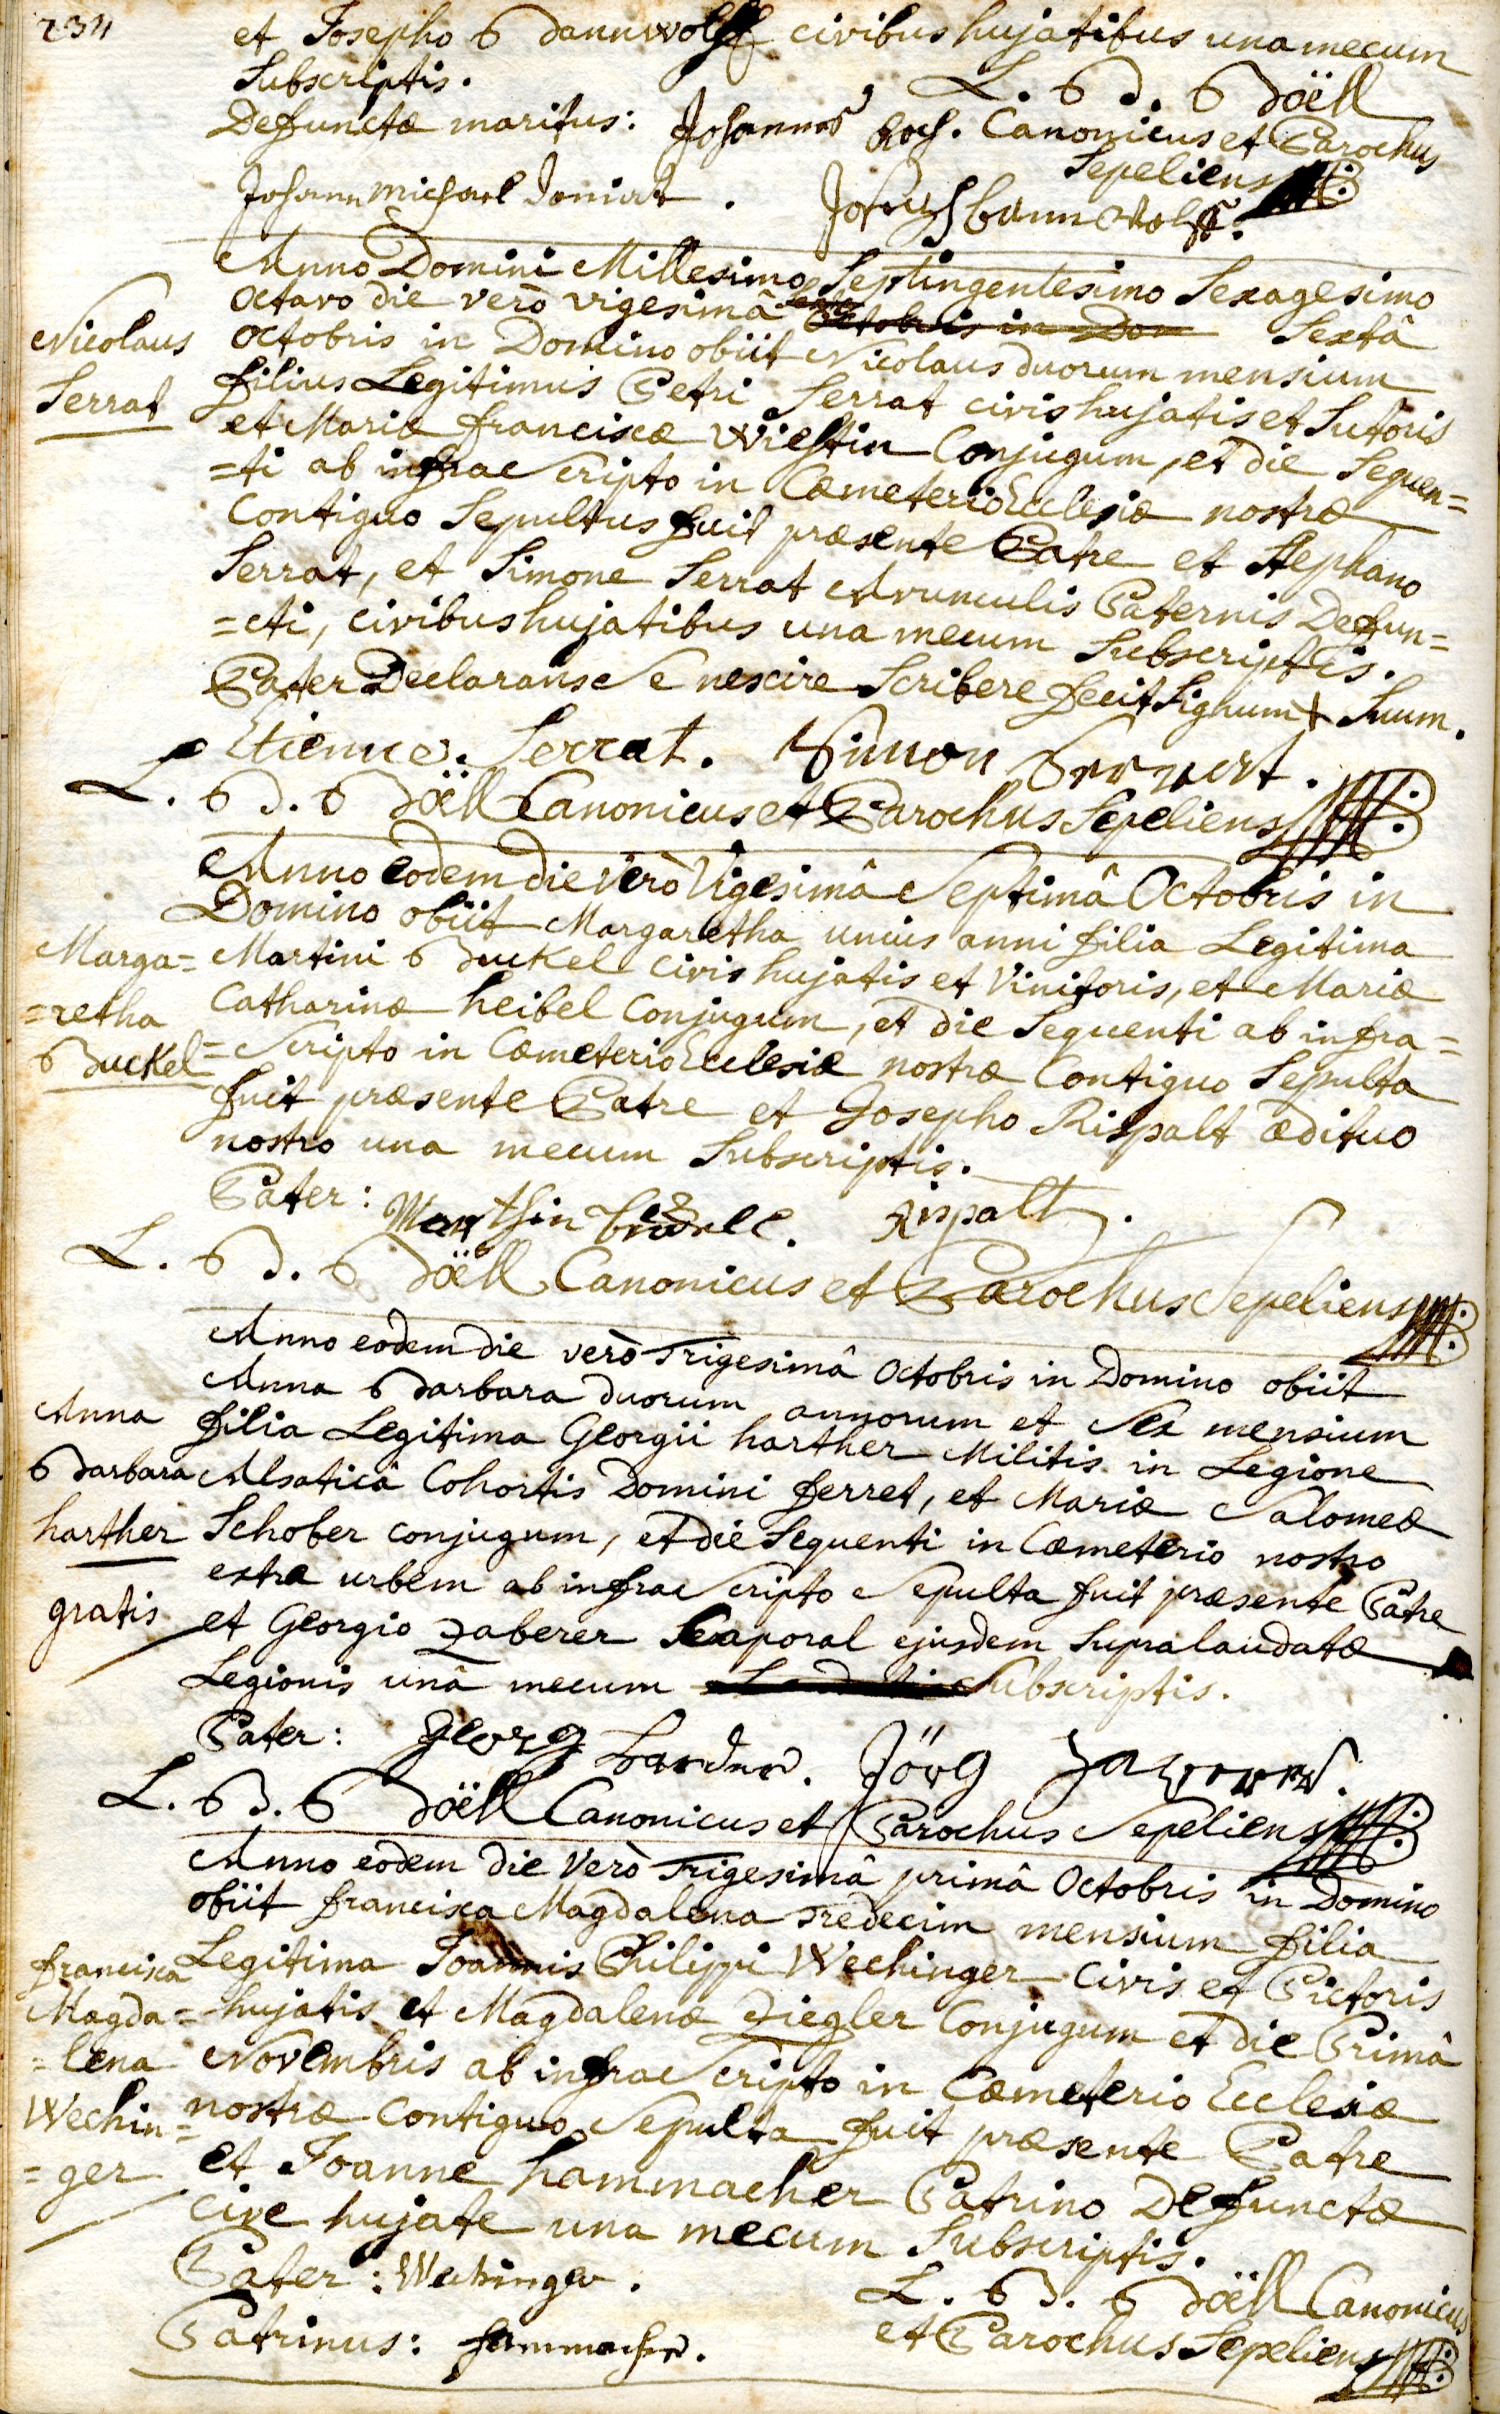 234
et Josepho Bannwolff civibus hujatibus una mecum
Subscriptis.
L. B. Böell
Defunctæ maritus: Johannes Koch. Canonicus et Parochus
Sepeliens
Johann Michael . Joseph bannwolff.
Anno Domini Millesimo Septingentesimo Sexagesimo
Octavo die verò vigesimâ Octobris in Dom Sextâ
Nicolaus
Serrat
Octobris in Domino obiit Nicolaus duorum mensium
filius Legitimus Petri Serrat civis hujatis et Sutoris
et Mariæ franciscæ Wiestin Conjugum, et die Sequen=
=ti ab infrae Scripto in Cæmeterio Ecclesiæ nostræ
Contiguo Sepultus fuit præsente Patre et Stephano
Serrat, et Simone Serrat Avunculis Paternis Defun=
=cti, civibus hujatibus una mecum Subscriptis.
Pater Declarans Se nescire Scribere fecit Signum + Suum.
Etienne. Serrat. Simon Serrart.
L. B. Böell Canonicus et Parochus Sepeliens
Anno eodem die verò Vigesimâ Septimâ Octobris in
Domino obiit Margaretha unius anni filia Legitima
Marga=
=retha
Buckel
Martini Buckel civis hujatis et Vinitoris, et Mariæ
Catharinæ heibel Conjugum, et die Sequenti ab infra=
=Scripto in Cæmeterio Ecclesiæ nostræ Contiguo Sepulta
fuit præsente Patre et Josepho Rispalt ædituo
nostro una mecum Subscriptis.
Pater: Marthin . Rispalt.
L. B. Böell Canonicus et Parochus Sepeliens
Anno eodem die verò Trigesimâ Octobris in Domino obiit
Anna Barbara duorum annorum et Sex mensium
Anna
Barbara
harther
gratis
filia Legitima Georgii harther Militis in Legione
Alsaticâ Cohortis Domini ferret, et Mariæ Salomeæ
Schober conjugum, et die Sequenti in Cæmeterio nostro
extra urbem ab infrae Scripto Sepulta fuit præsente Patre
et Georgio Zaberer Caporal ejusdem Supralaudatæ
Legionis unâ mecum Subscriptis.
Pater: Georg harder. Jörg .
L. B. Böell Canonicus et Parochus Sepeliens
Anno eodem die Verò Trigesimâ primâ Octobris in Domino
obiit francisca Magdalena Tredecim mensium filia
francisca
Magda=
=lena
Wechin=
=ger
Legitima Joannis Philippi Wechinger civis et Pictoris
hujatis et Magdalenæ Ziegler Conjugum et die Primâ
Novembris ab infrae Scripto in Cæmeterio Ecclesiæ
nostræ Contiguo Sepulta fuit præsente Patre
et Joanne hammacher Patrino Defunctæ
cive hujate una mecum Subscriptis.
Pater: Wechinger.
L. B. Böell Canonicus
Patrinus: hammacher.
et Parochus Sepeliens